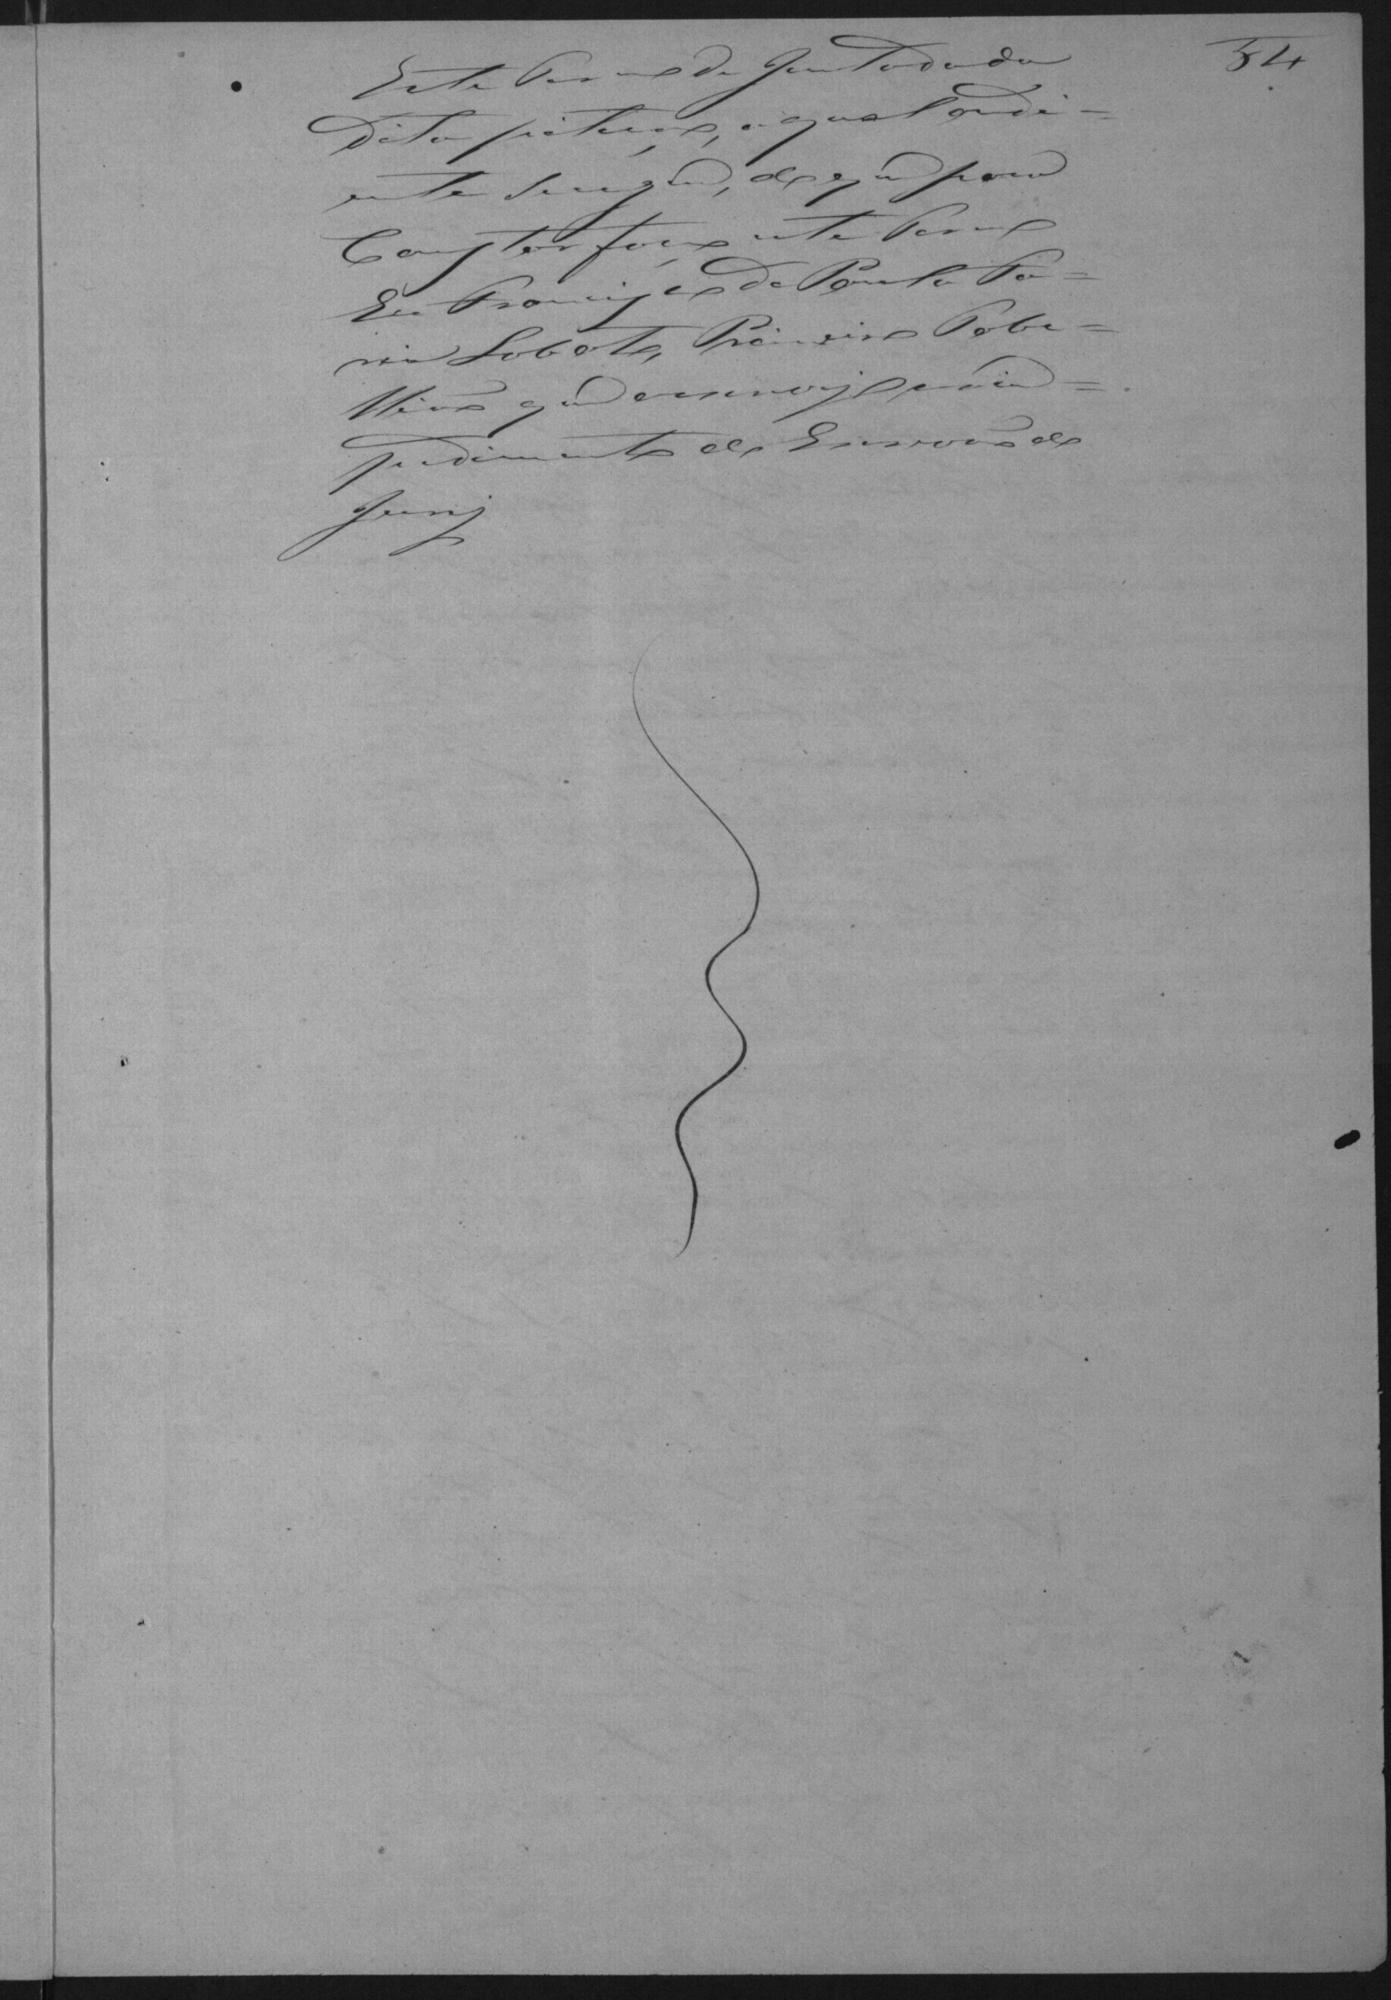 54
Este termo de Juntada da
dita petição, a qual adi=
ante se segue, de que para
Constar faço este termo
Eu Francisco de Paula Fa=
ria Lobato, Primeiro Tabe=
llião que escrevi por im=
pedimento do Escrivão do
Jury